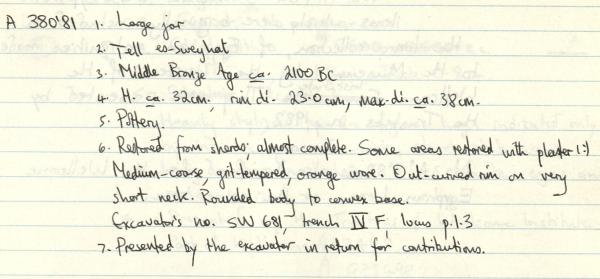 A 380'81 1. Large jar
2. Tell es-Sweyhat
3. Middle Bronze Age ca. 2100 BC
4. H. ca. 32cm, rim di. 23.0 cm, max. di. ca. 38cm.
5. Pottery.
6. Restored from sherds; almost complete. Some areas restored with plaster (:)
Medium-coarse, grit-tempered, orange ware. Out-curved rim on very
short neck. Rounded body to convex base.
Excavator's no. SW 681, trench IV F, locus p.1.3
7. Presented by the excavator in return for contributions.